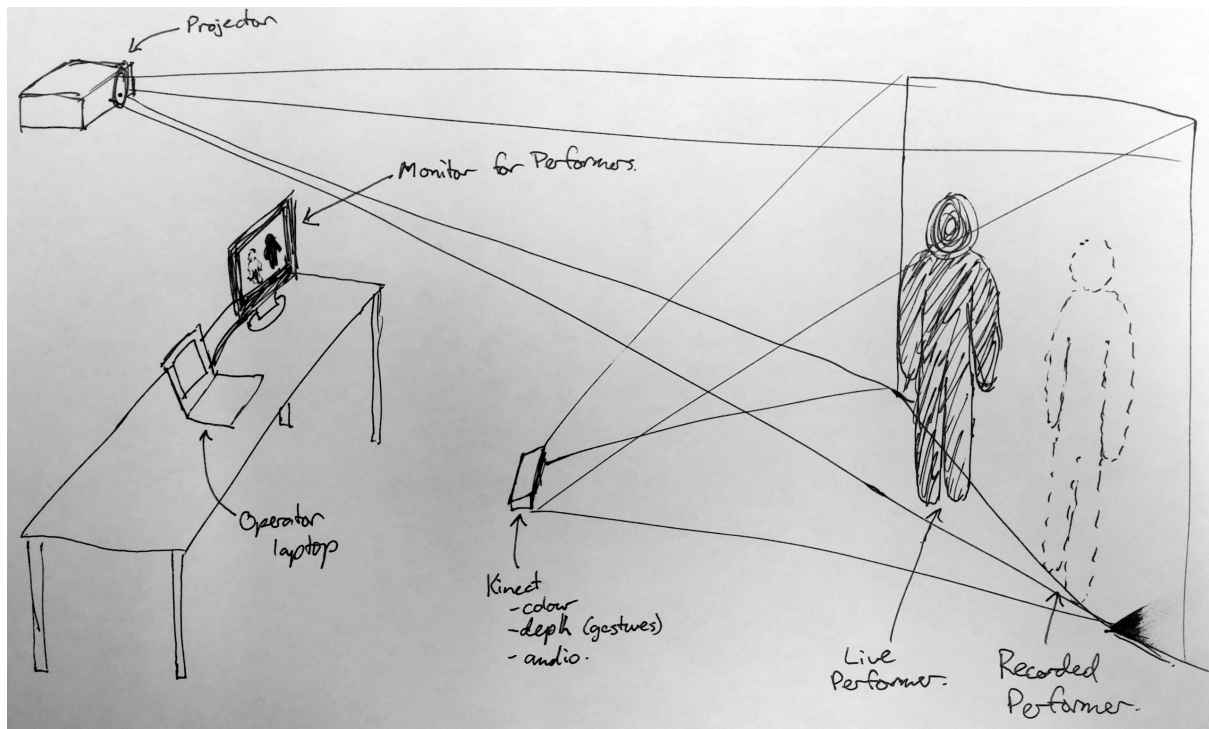 Projector
Monitor for Performers.
Operator
laptop
Kinect
- colour
- depth (gestures)
- audio.
Live
Performer.
Recorded
Performer.